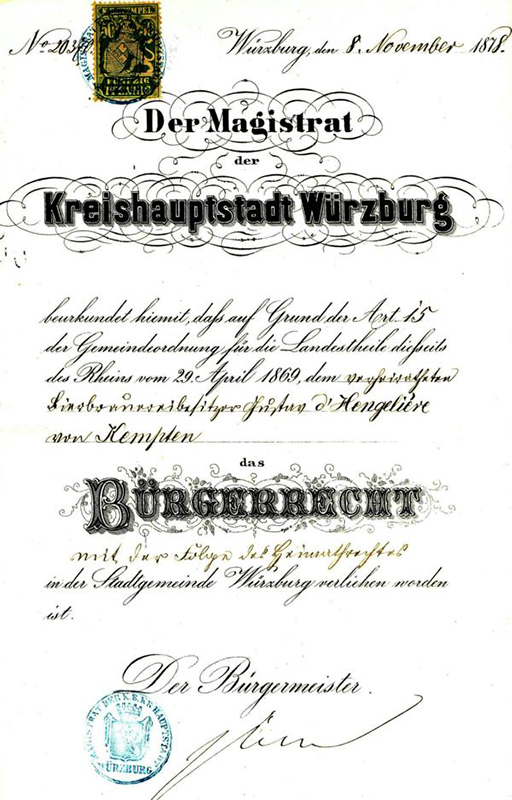 No. 203
Würzburg, den 8. November 1878.
FÜNFZIG
PFENNIG
Der Magistrat
der
Kreishauptstadt Würzburg
beurkundet hiemit, daß auf Grund der Art. 15
der Gemeindeordnung für die Landestheile dießseits
des Rheins vom 29. April 1869, dem verheiratheten
Bierbrauereibesitzer Gustav d'Hengelière
von Kempten
das
BÜRGERRECHT
mit der Folge des Heimathrechtes
in der Stadtgemeinde Würzburg verliehen worden
ist.
Der Bürgermeister.
MAGISTRAT DER K. B. KR. HAUPTSTADT
WÜRZBURG